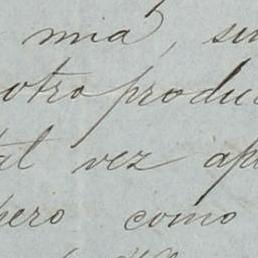 mia, su
otro produc
tal vez ap
pero como